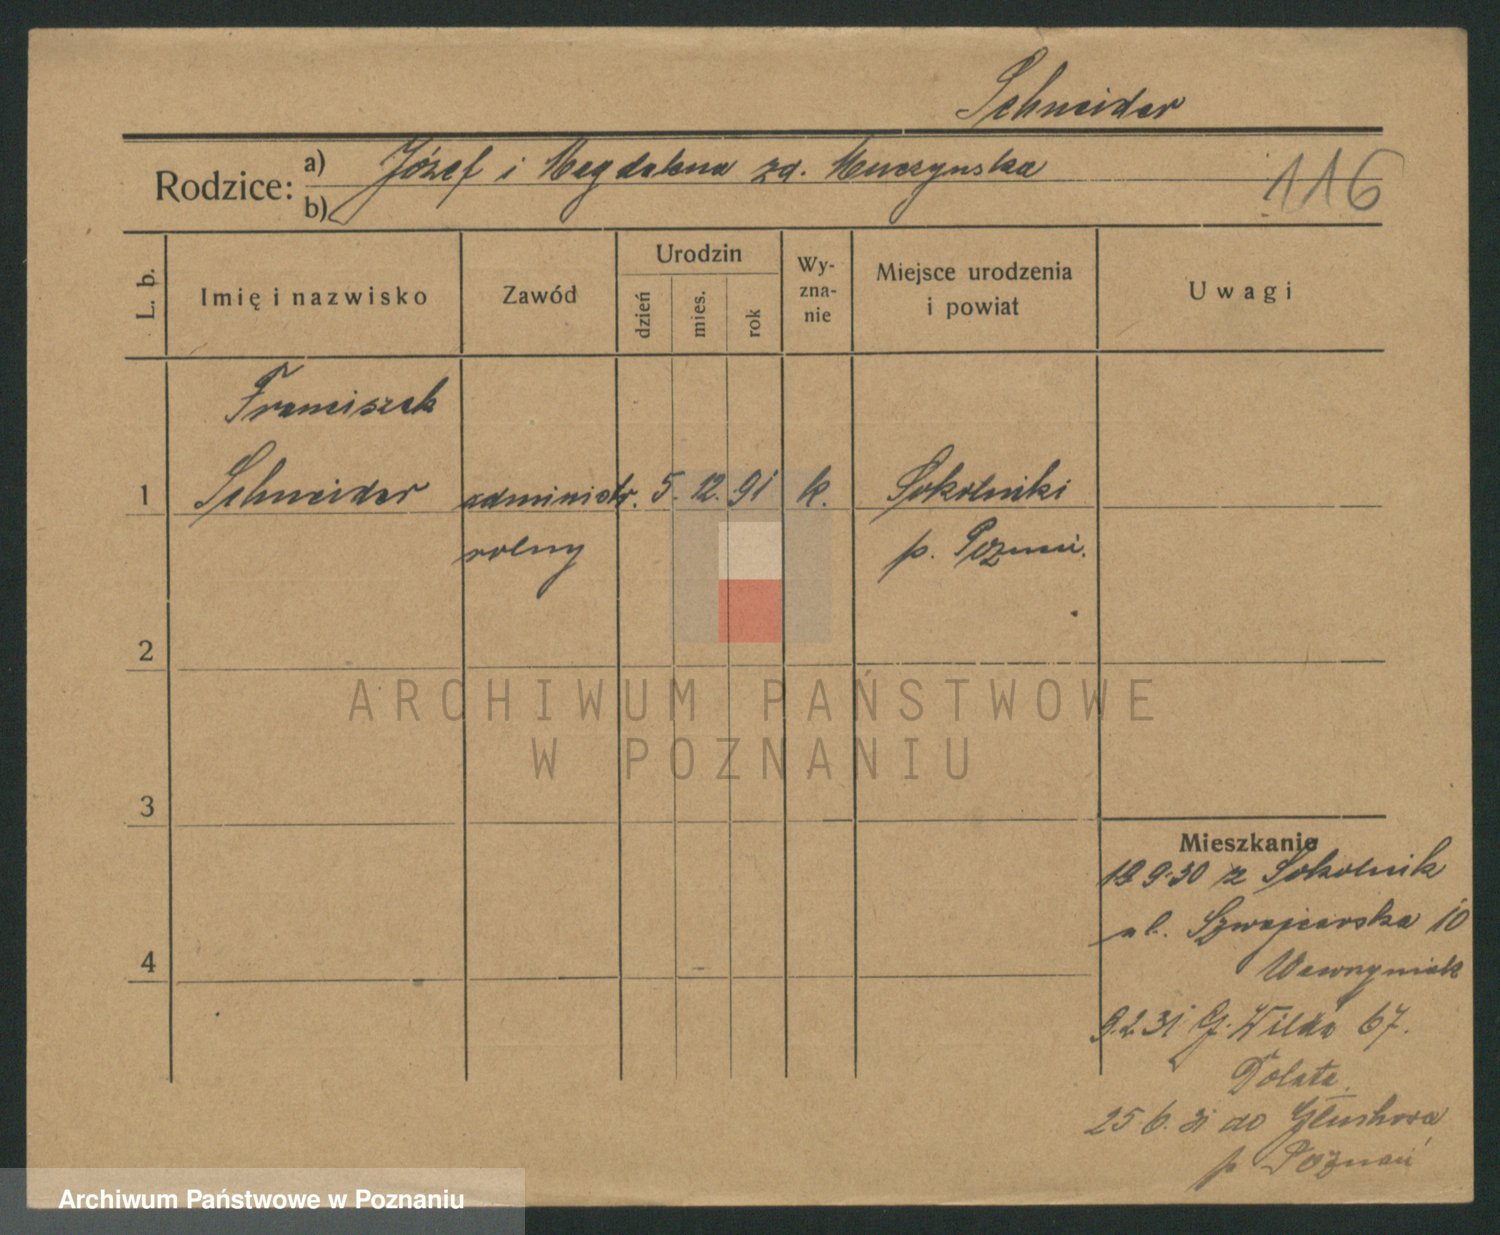 Schneider
Rodzice:
a) Józef i Magdalena zd. Murczynska
b)
116
L. b.
Imię i nazwisko
Zawód
Urodzin
dzień
mies.
rok
Wy-
zna-
nie
Miejsce urodzenia
i powiat
Uwagi
Franciszek
1 Schneider administr. 5. 12. 91 k. Sokolniki
rolny p. Poznań.
2
ARCHIWUM PAŃSTWOWE
W POZNANIU
3
Mieszkanie
9.30 z Sokolnik
ul. Szwajcarska 10
Wawrzyniak
4
9.2.31 G. Wilda 67.
Polata
25 6. 31 do
p Poznań
Archiwum Państwowe w Poznaniu